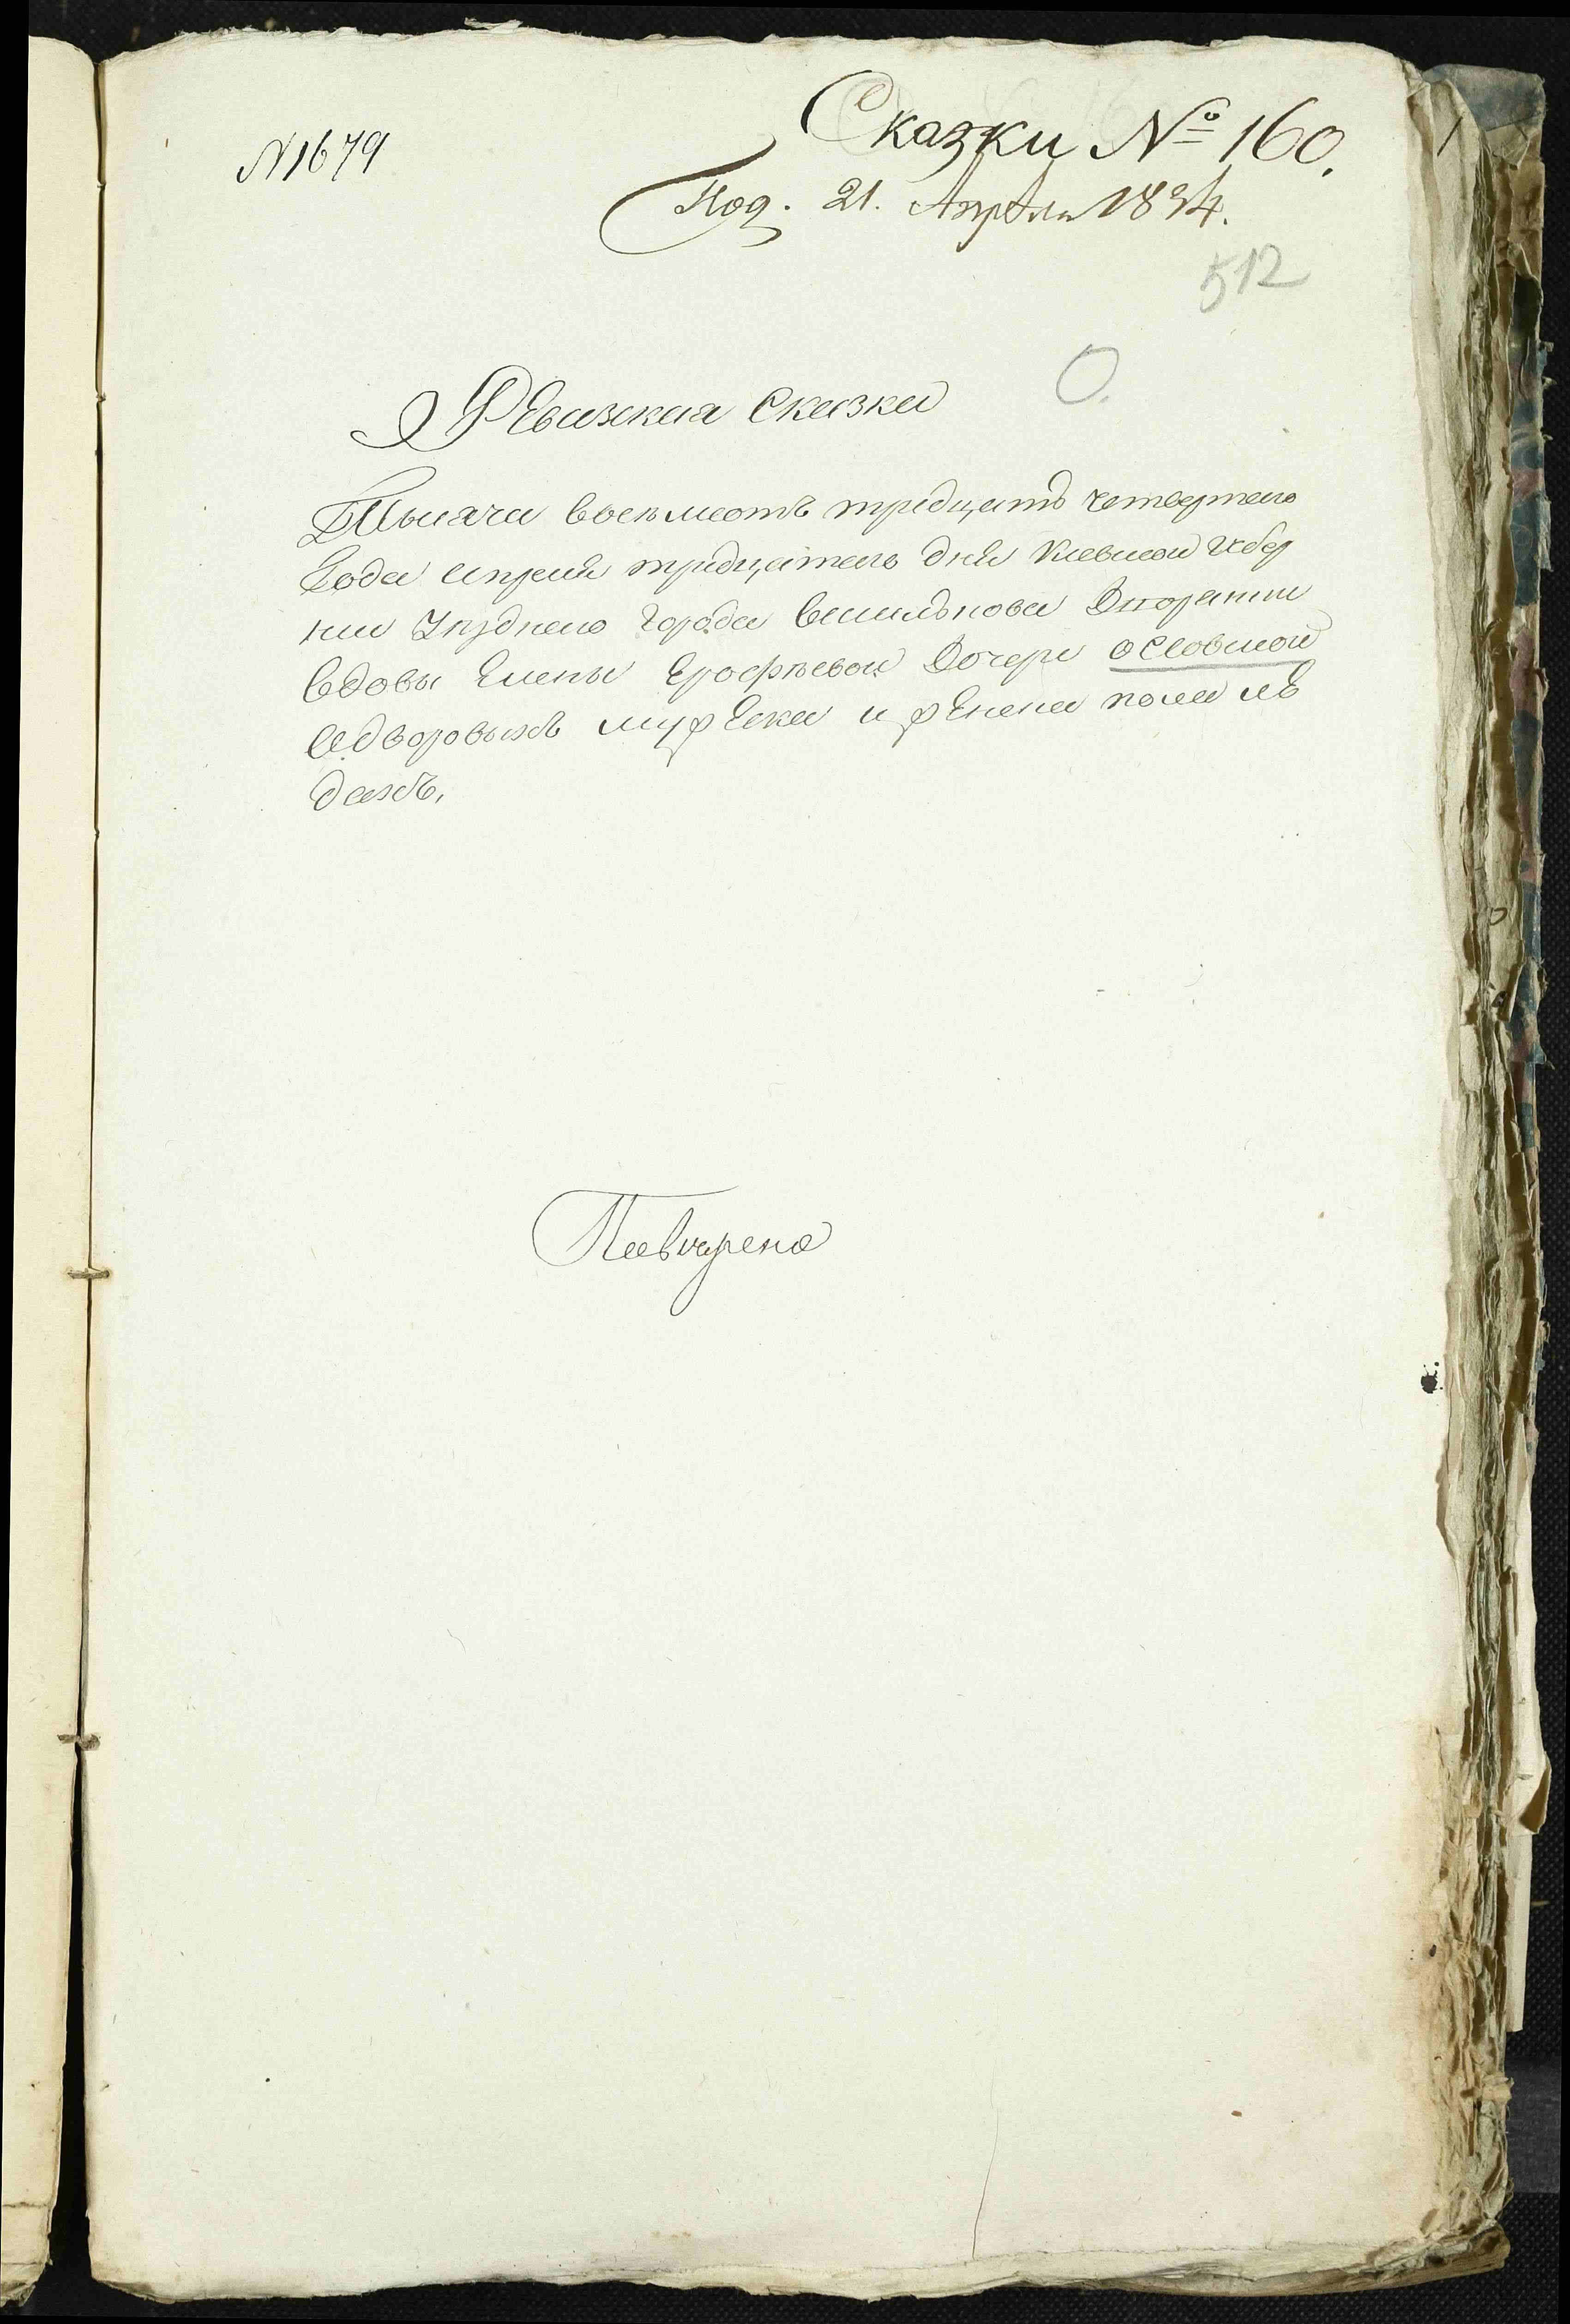 N 1679
Сказки № 160.
Под. 21. Апреля 1834.
512
Ревизкая Сказка
Тысяча восемсотъ тридцать четвертаго
Года апреля тридцатаго дня Киевской губер
нии Уезднаго города василькова Дворянки
вдовы Елены Ерофѣевой Дочери осовской
о дворовыхъ мужеска и женска пола лю
дахъ.